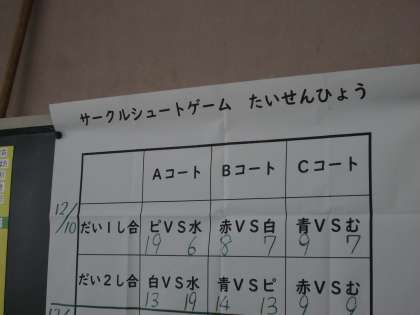 サークルシュートゲーム たいせんひょう
Aコート Bコート Cコート
12/10
だい1し合 ピVS水 赤VS白 青VSむ
19 6 8 7 9 7
だい2し合 白VS水 青VSピ 赤VSむ
13 19 14 13 9 9